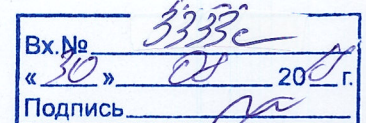 Вх.№ 3333с
«30» 08 20 г.
Подпись